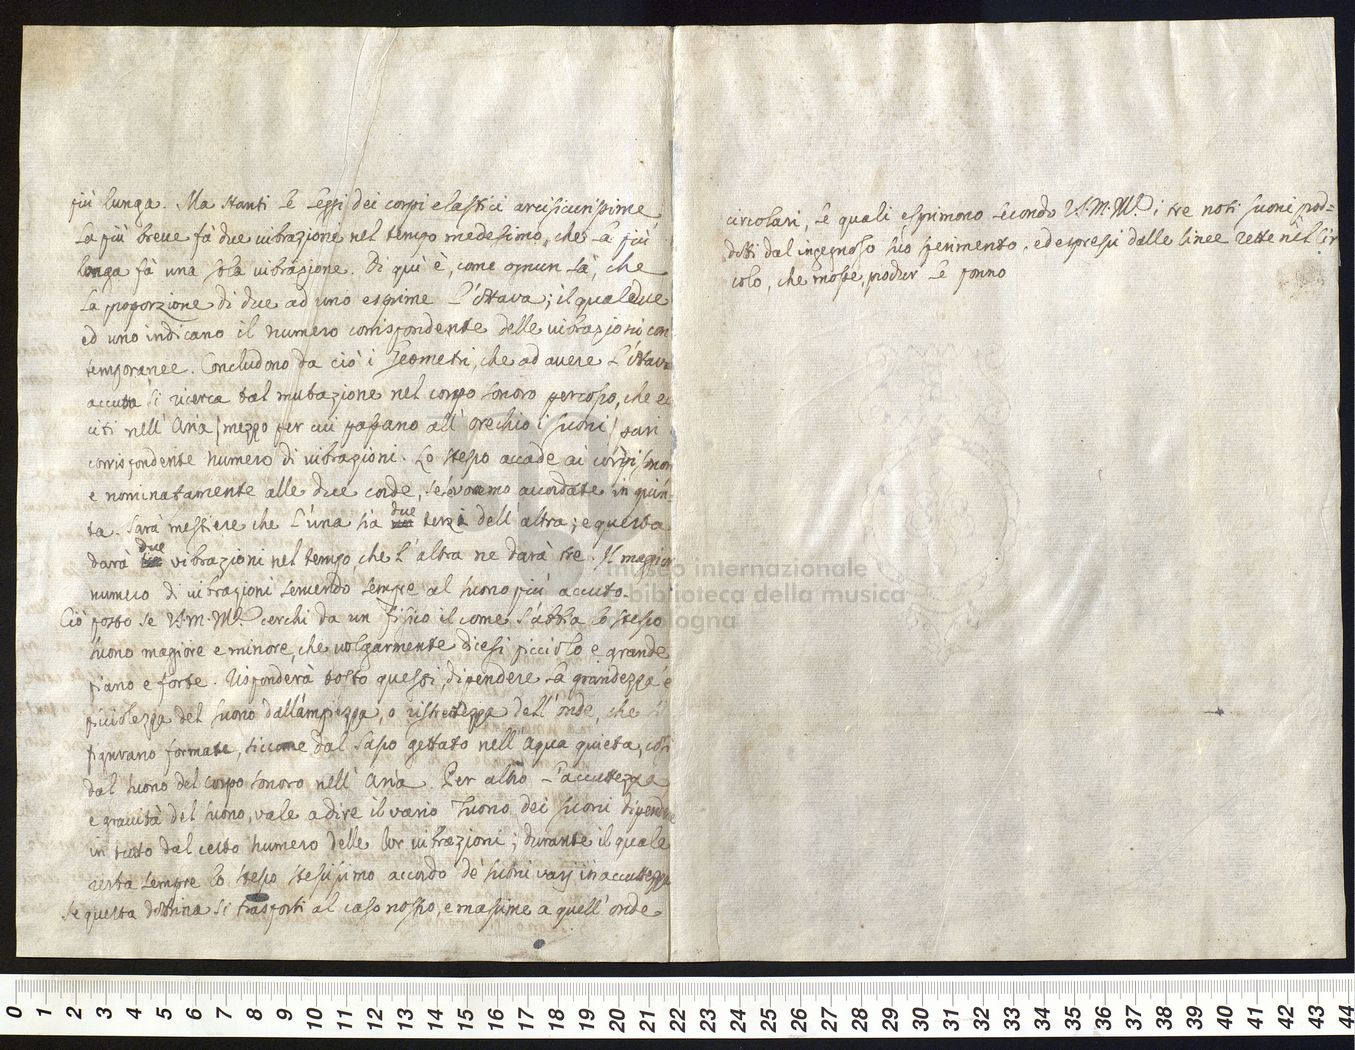 più lunga. Ma stanti le leggi dei corpi elastici arcisicurissime
la più breve fà due vibrazione nel tempo medesimo, che la più
longa fà una sola vibrasione. Di quì è, come ognun sà, che
la proporzione di due ad uno esprime l'ottava; il qual due
ed uno indicano il numero corrispondente delle vibrazioni con
temporanee. Concludono da ciò i Geometri, che ad avere l'ottava
accutta si ricerca tal mutazione nel corpo sonoro percosso, che ec
citi nell'Aria (mezzo per cui passano all'orechio i suoni) pari
corrispondente numero di vibrazioni. Lo stesso accade ai corpi sonori
e nominatamente alle due corde, se vorremo accordate in quin-
ta. Sarà mestiere che l'una sia due terzi dell'altra; e questa
darà due vibrazioni nel tempo che l'altra ne darà tre. Il maggior
numero di vibrazioni servendo sempre al suono più accuto.
Ciò posto se V.P.M.R. cerchi da un fisico il come s'abbia lo stesso
suono magiore e minore, che volgarmente dicesi picciolo e grande
piano e forte. Risponderà tosto questi, dipendere la grandezza e
picciolezza del suono dall'ampiezza, o ristrettezza dell'onde, che si
figurano formate, siccome dal sasso gettato nell'aqua quieta, così
dal suono del corpo sonoro nell'Aria. Per altro l'accuttezza
e gravità del suono, vale a dire il vario Tuono dei suoni dipende
in tutto dal certo numero delle lor vibrazioni; durante il quale
resta sempre lo stesso stesissimo accordo de' suoni varj in accuttezza
Se questa dottrina si trasporti al caso nostro, e massime a quell'onde
circolari, le quali esprimono secondo V.P.M.R. i tre noti suoni prod=
dotti dal ingegnoso suo sperimento, ed espressi dalle linee rette nel cir
colo, che mosse, produr le ponno
museo internazionale
e biblioteca della musica
di bologna
0 1 2 3 4 5 6 7 8 9 10 11 12 13 14 15 16 17 18 19 20 21 22 23 24 25 26 27 28 29 30 31 32 33 34 35 36 37 38 39 40 41 42 43 44